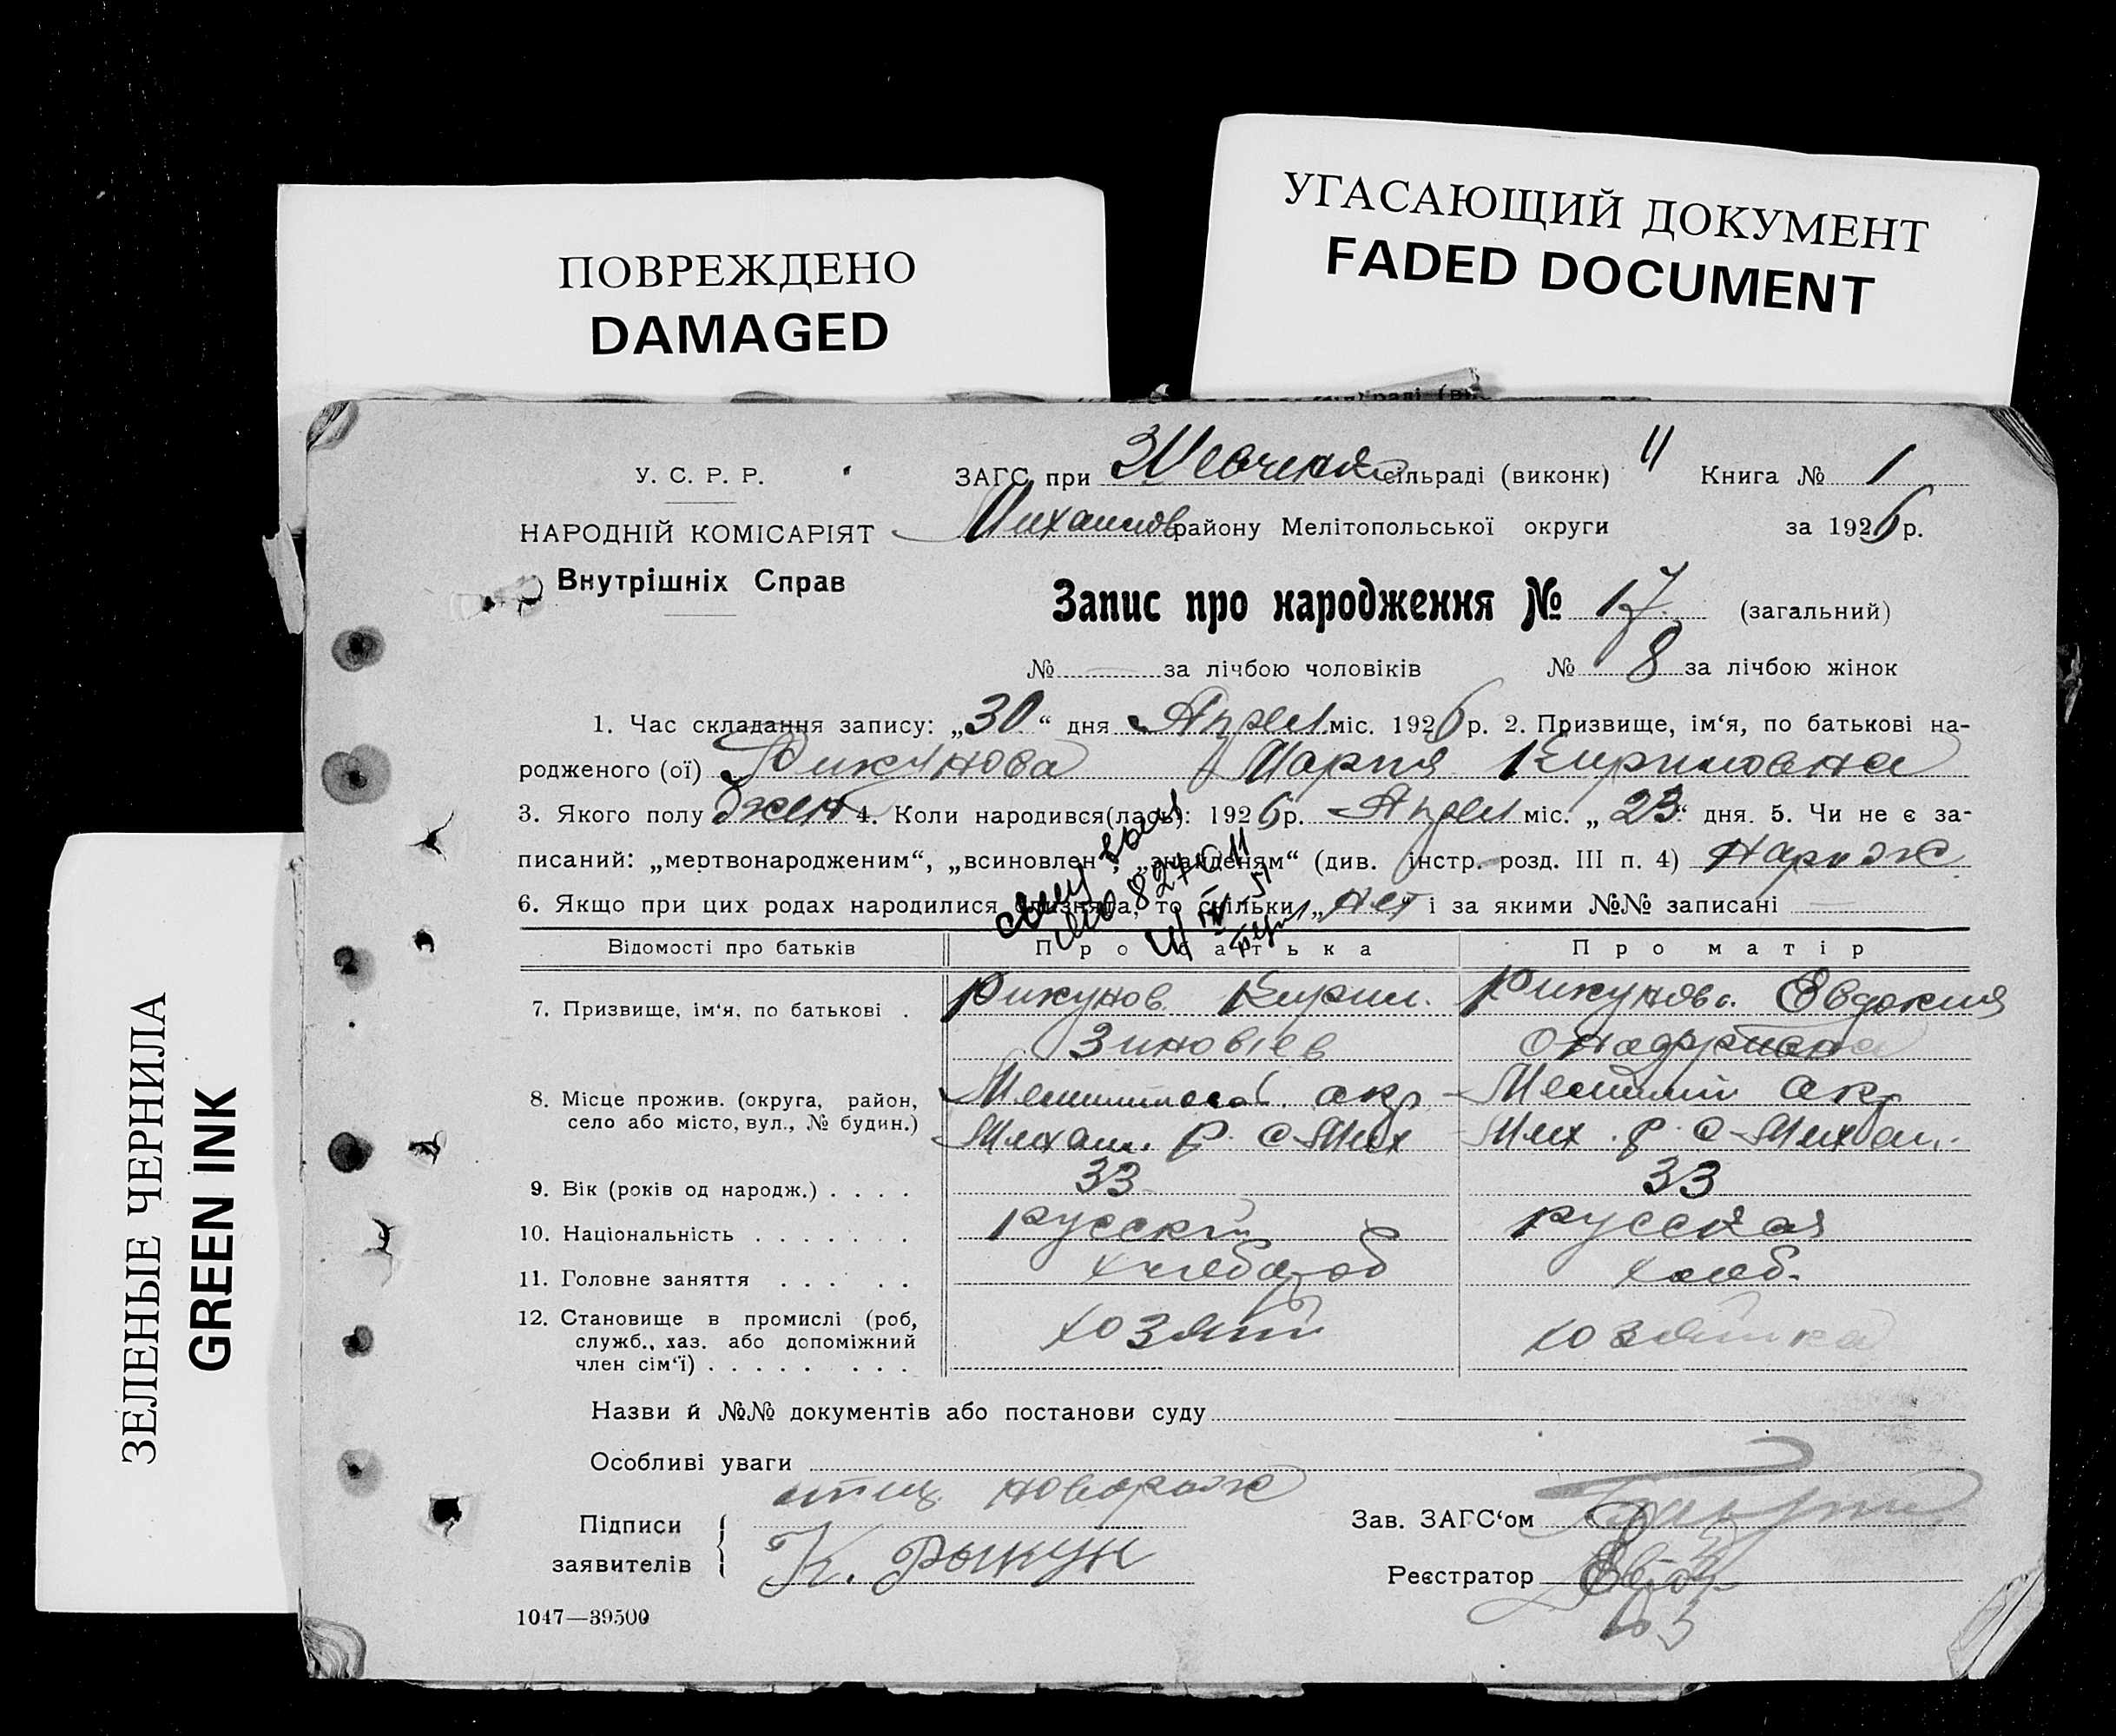 ПОВРЕЖДЕНО
DAMAGED
УГАСАЮЩИЙ ДОКУМЕНТ
FADED DOCUMENT
ЗЕЛЕНЫЕ ЧЕРНИЛА
GREEN INK
У. С. Р. Р.
НАРОДНІЙ КОМІСАРІЯТ
Внутрішніх Справ
ЗАГС при Шевченк сільраді (виконк) Книга № 1
Михайлов району Мелітопольської округи за 1926 р.
Запис про народження № 17 (загальний)
№ — за лічбою чоловіків № 8 за лічбою жінок
1. Час складання запису: „30“ дня Апрел міс. 1926 р. 2. Призвище, ім‘я, по батькові на-
родженого (ої) Рикунова Мария Кириловна
3. Якого полу жен 4. Коли народився(лась): 1926 р. Апрел міс. „23“ дня. 5. Чи не є за-
писаний: „мертвонародженим“, „всиновлен“, „знайденям“ (див. інстр. розд. III п. 4)
6. Якщо при цих родах народилися близнята, то скільки „нет“ і за якими №№ записані —
Відомості про батьків Про батька Про матір
7. Призвище, ім‘я, по батькові . Рикунов Кирил. Рикунова Евдокия
Зиновіев
8. Місце прожив. (округа, район, окр Мелит окр
село або місто, вул., № будин.) Михайл. р. с Мих Мих. р. с Михайл.
9. Вік (років од народж.) . . . . 33 33
10. Національність . . . . . . . русский русская
11. Головне заняття . . . . . хлебороб хлеб.
12. Становище в промислі (роб, хозяин хозяйка
служб., хаз. або допоміжний
член сім‘ї) . . . . . . . . .
Назви й №№ документів або постанови суду
Особливі уваги
отец новорож
Підписи
заявителів
К. Рыкун
Зав. ЗАГС‘ом
Реєстратор
1047—39500